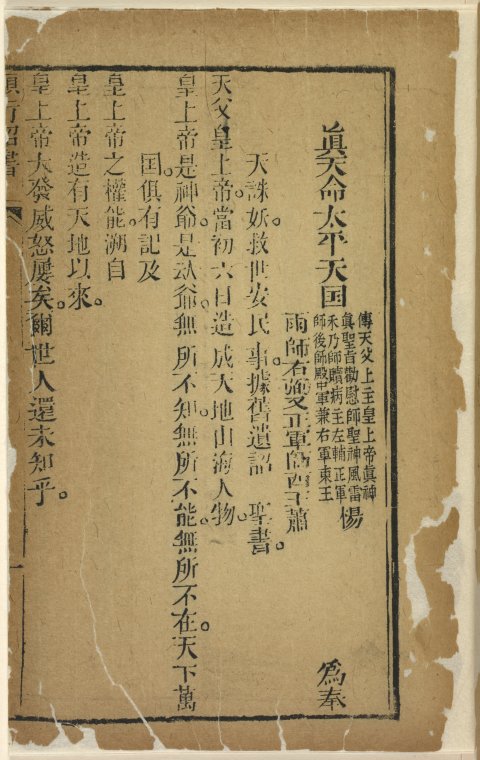 眞天命太平天囯
傳天父上主皇上帝眞神
眞聖旨勸慰師聖神風雷
禾乃師贖病主左輔正軍
師後師殿中軍兼右軍東王
楊
雨師右弼又正軍師西王蕭
爲奉
天誅妖。救世安民事。據舊遺詔 聖書。
天父皇上帝。當初六日造成天地山海人物。
皇上帝是神爺。是䰟爺。無所不知。無所不能。無所不在。天下萬
囯。俱有記及
皇上帝之權能。溯自
皇上帝造有天地以來。
皇上帝大發威怒屢矣。爾世人還未知乎。
頒行詔書
一